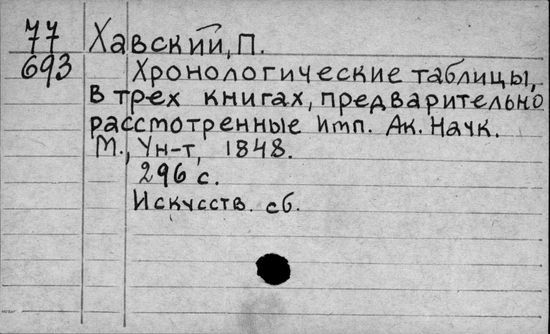 77 Хавский, П.
693 Хронологические таблицы,
в трех книгах, предварительно
рассмотренные Имп. Ак. Наук.
М., Ун-т, 1848.
296 с.
Искусств. сб.